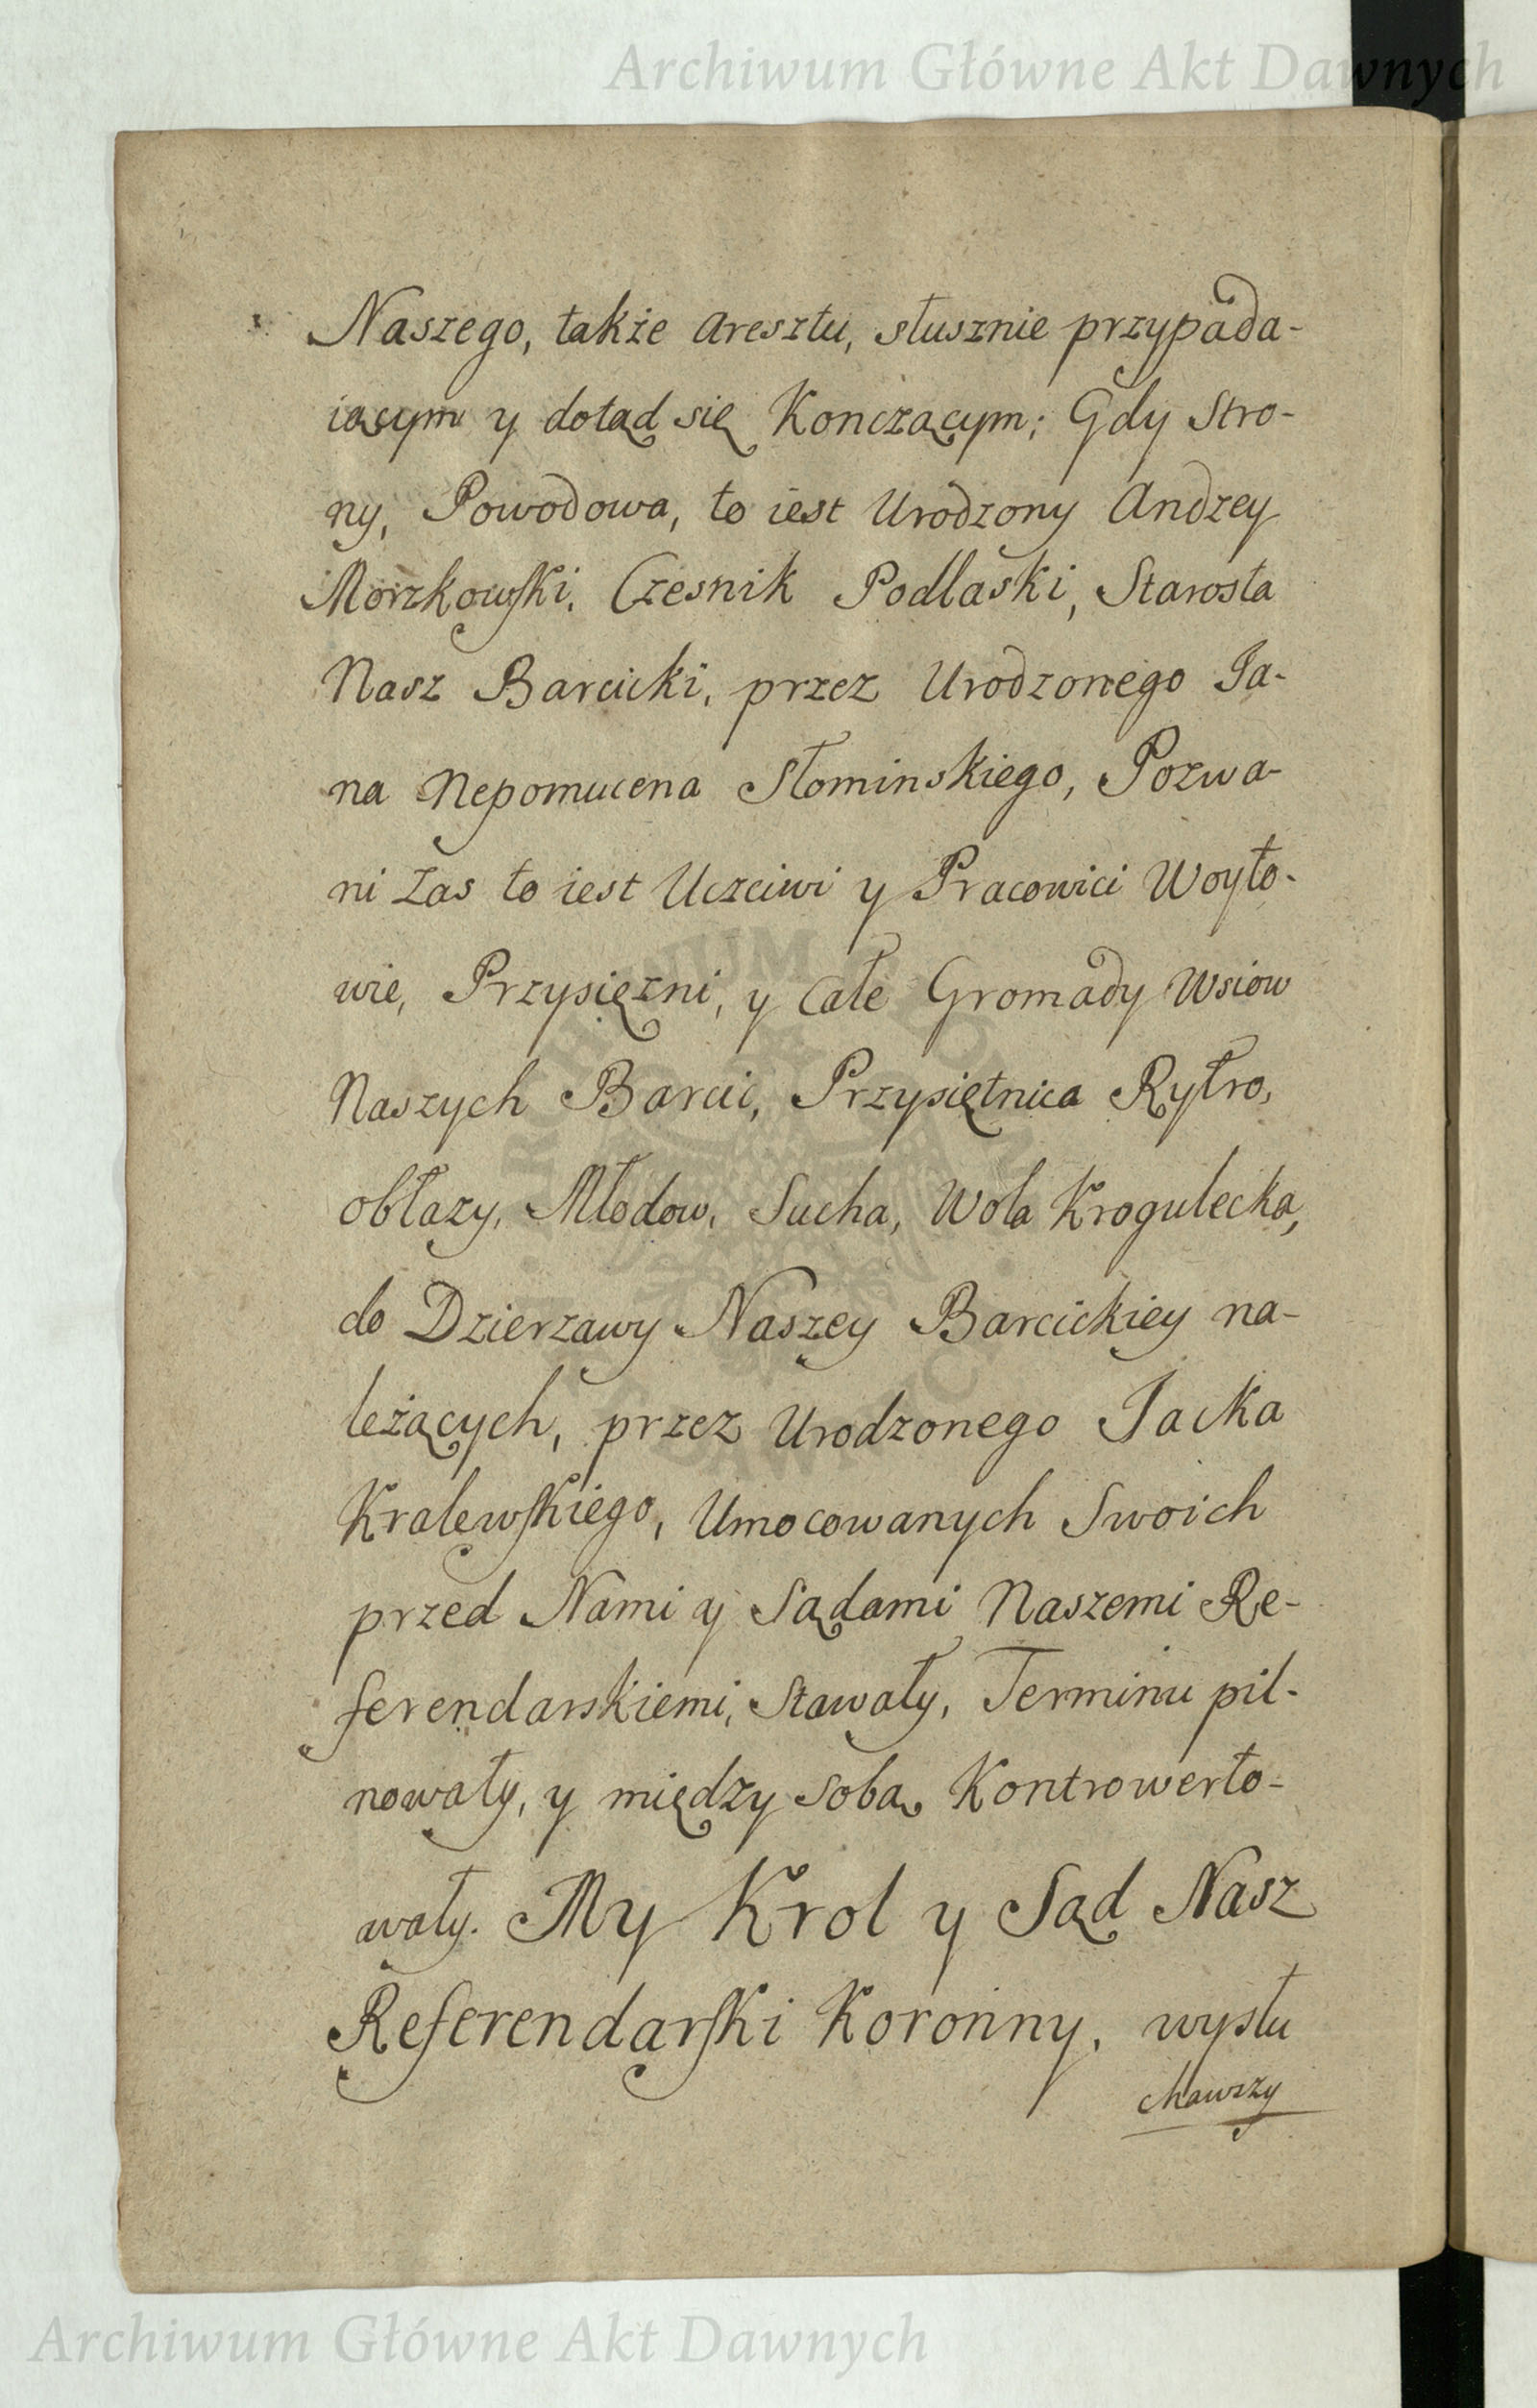 Archiwum Główne Akt Dawnych
Naszego, także Aresztu, słusznie przypada-
iącym y dotąd się Konczącym; Gdy Stro-
ny, Powodowa, to iest Urodzony Andrzey
Morzkowski, Czesnik Podlaski, Starosta
Nasz Barcicki, przez Urodzonego Ja-
na Nepomucena Słominskiego, Pozwa-
ni Zas to iest Uczciwi y Pracowici Woyto-
wie, Przysięzni, y Całe Gromady Wsiow
Naszych Barcic, Przysiętnica Rytro,
obłazy, Młodow, Sucha, Wola Krogulecka,
do Dzierzawy Naszey Barcickiey na-
leżących, przez Urodzonego Jacka
Kralewskiego, Umocowanych Swoich
przed Nami y Sądami Naszemi Re-
ferendarskiemi, Stawały, Terminu pil-
nowały, y między Sobą Kontrowerto-
wały. My Krol y Sąd Nasz
Referendarski Koronny, wysłu
chawszy
Archiwum Główne Akt Dawnych